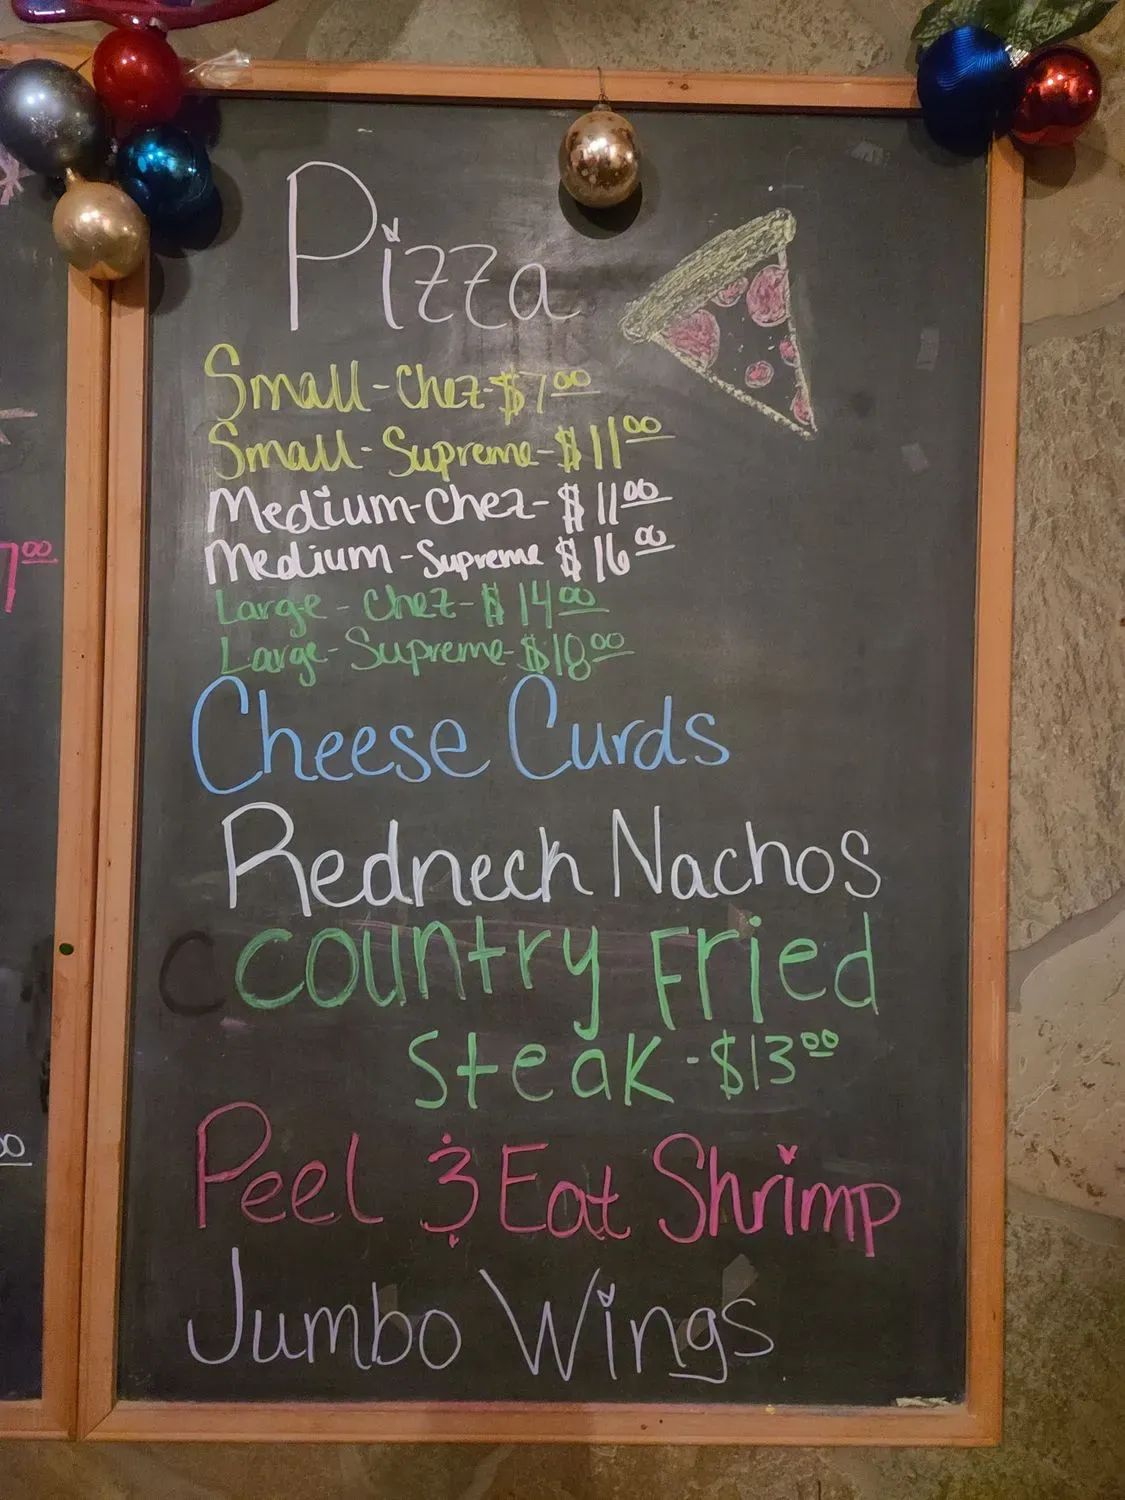 Pizza
Small-Chez-$7.00
Small-Supreme-$11.00
Medium-Chez-$11.00
Medium-Supreme $16.00
Large-Chez-$14.00
Large-Supreme-$18.00
Cheese Curds
Redneck Nachos
Country Fried
Steak-$13.00
Peel & Eat Shrimp
Jumbo Wings
7.00